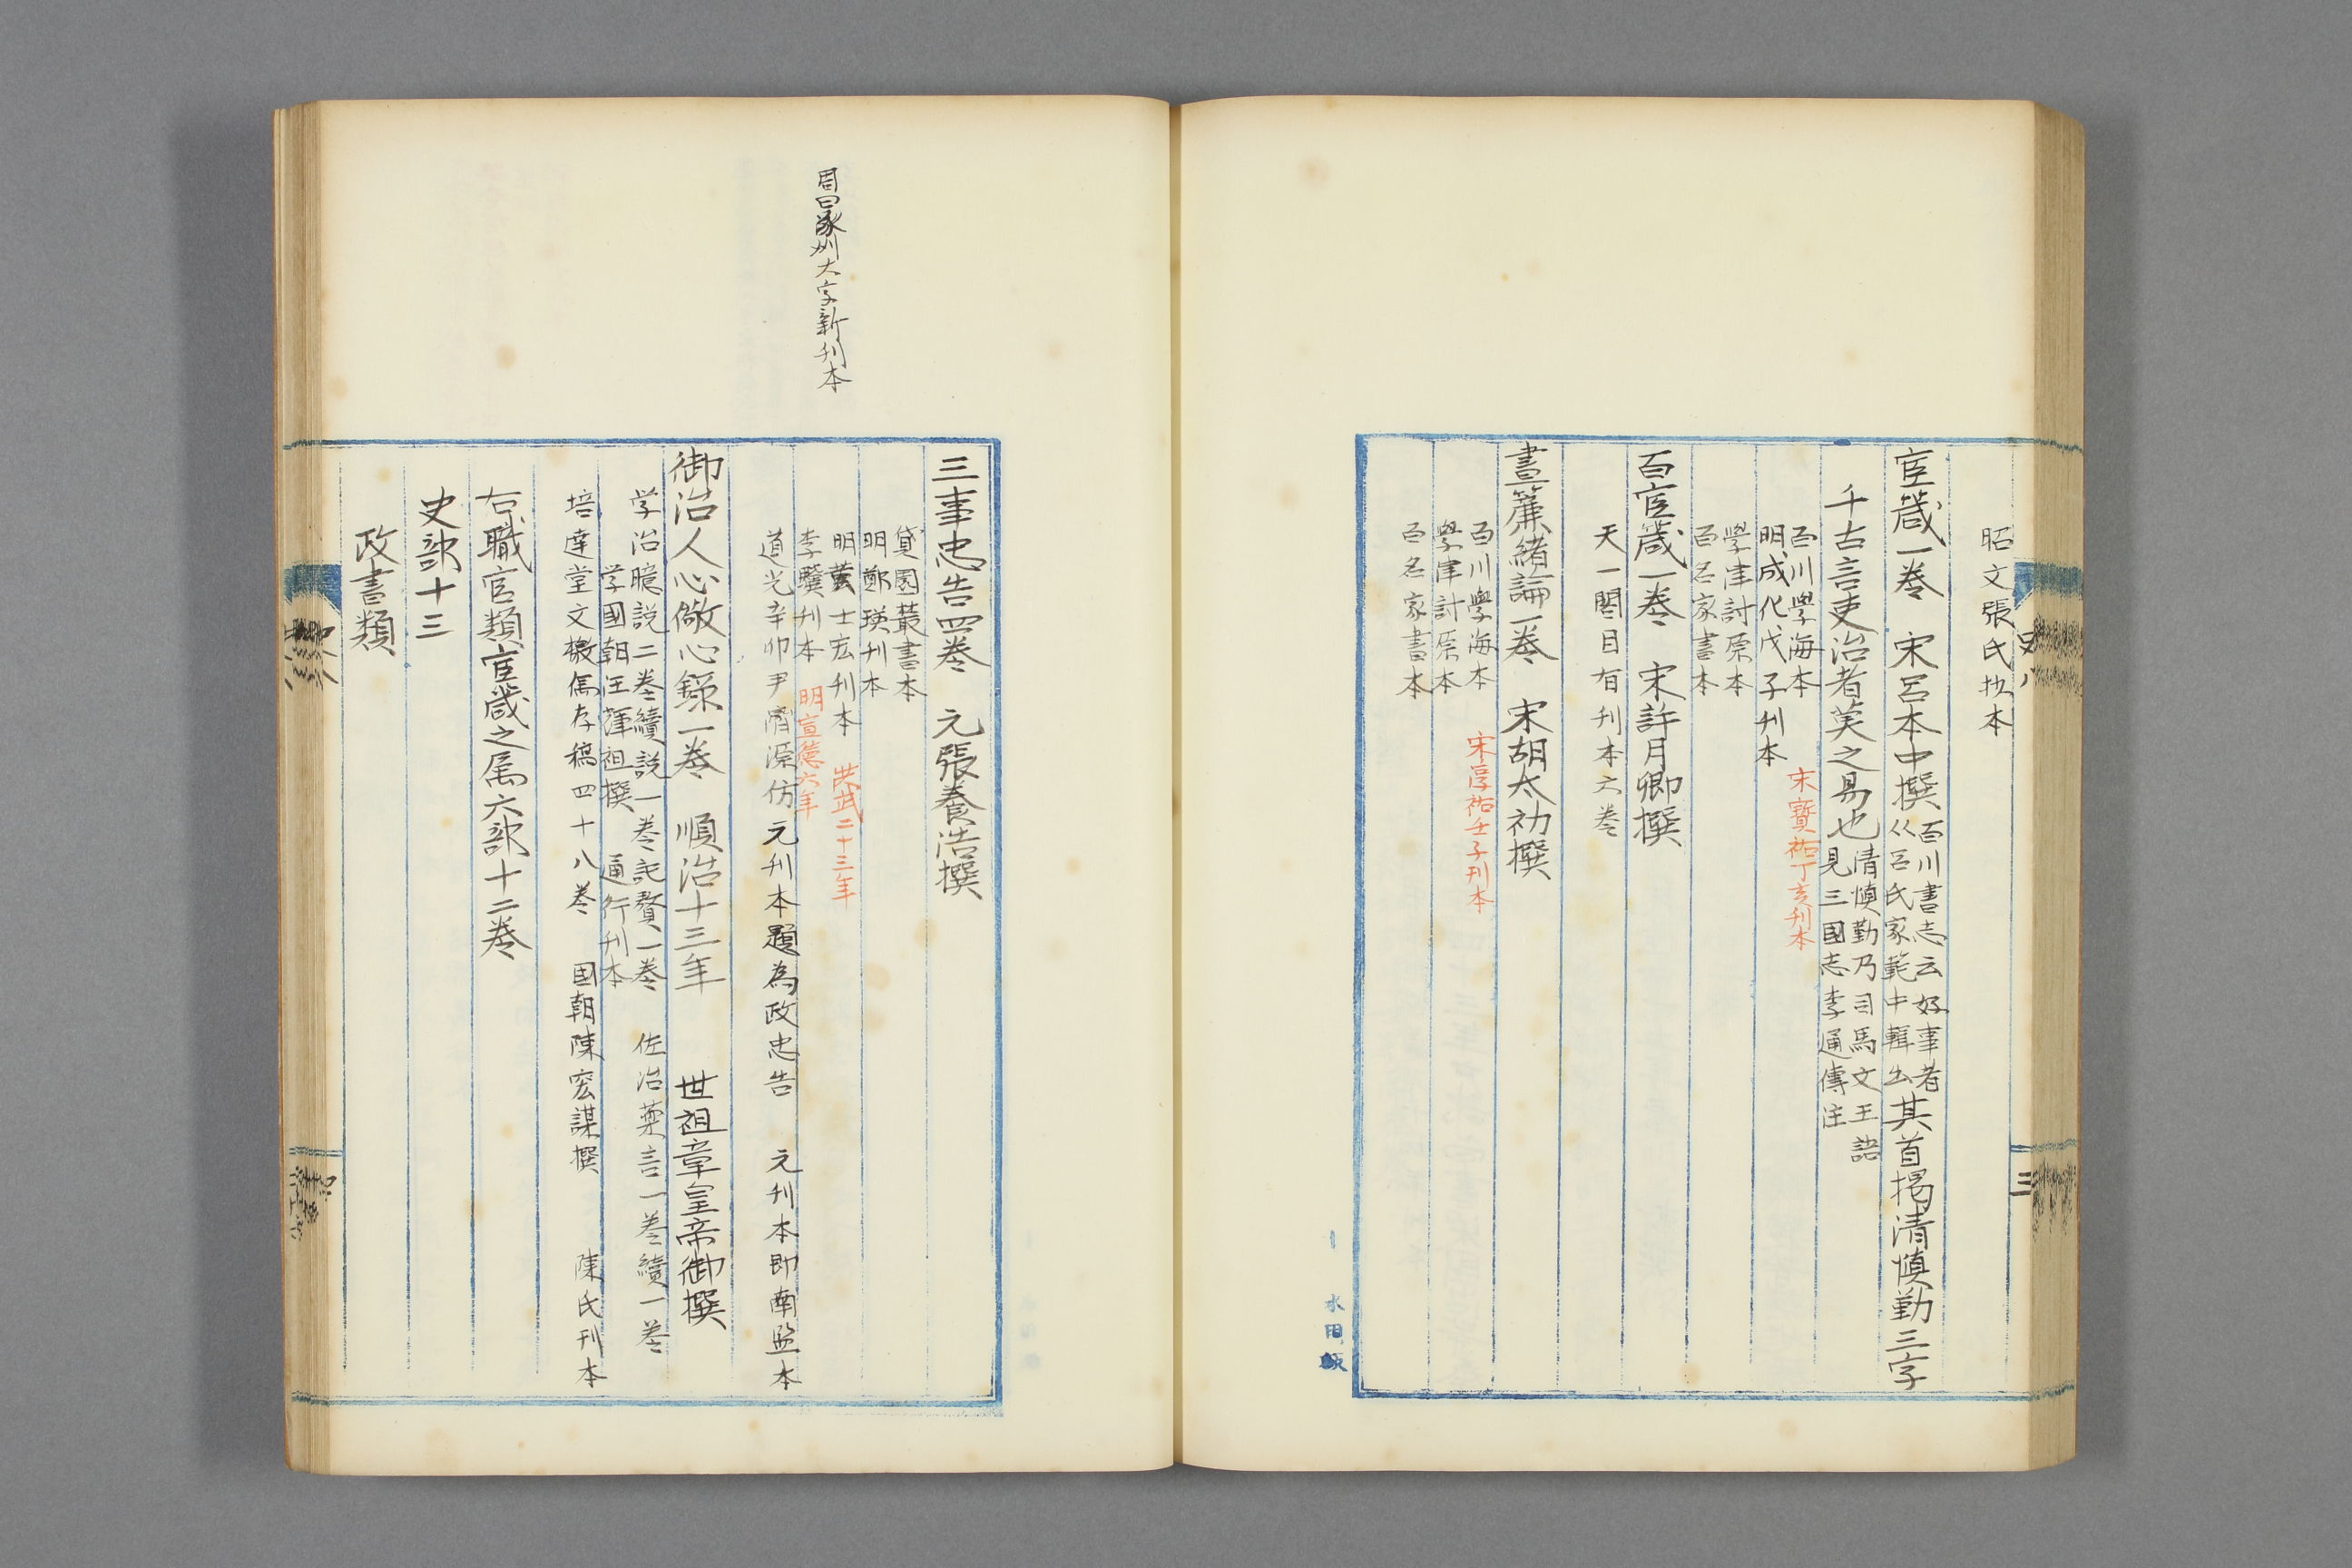 昭文張氏抄本
官箴一卷　宋呂本中撰
百川書志云好事者
从呂氏家範中輯出
其首揭清慎勤三字
千古言吏治者莫之易也
清慎勤乃司馬文王語
見三國志李通傳注
百川學海本　宋寶祐丁亥刊本
明成化戊子刊本
學津討原本
百名家書本
百官箴一卷　宋許月卿撰
天一閣目有刊本六卷
晝簾緒論一卷　宋胡太初撰
百川學海本　宋淳祐壬子刊本
學津討原本
百名家書本
三
三事忠告四卷　元張養浩撰
貸園叢書本
明鄭瑛刊本
明黄士宏刊本　洪武二十三年
李驥刊本　明宣德六年
周日
大字新刊本
道光辛卯尹濟源仿元刊本題為政忠告　元刊本即南監本
御治人心儆心錄一卷　順治十三年　世祖章皇帝御撰
学治臆説二卷續説一卷説贅一卷　佐治藥言一卷續一卷
学國朝汪輝祖撰　通行刊本
培遠堂文檄偶存稿四十八卷　國朝陳宏謀撰　陳氏刊本
右職官類官箴之属六部十二卷
史部十三
政書類